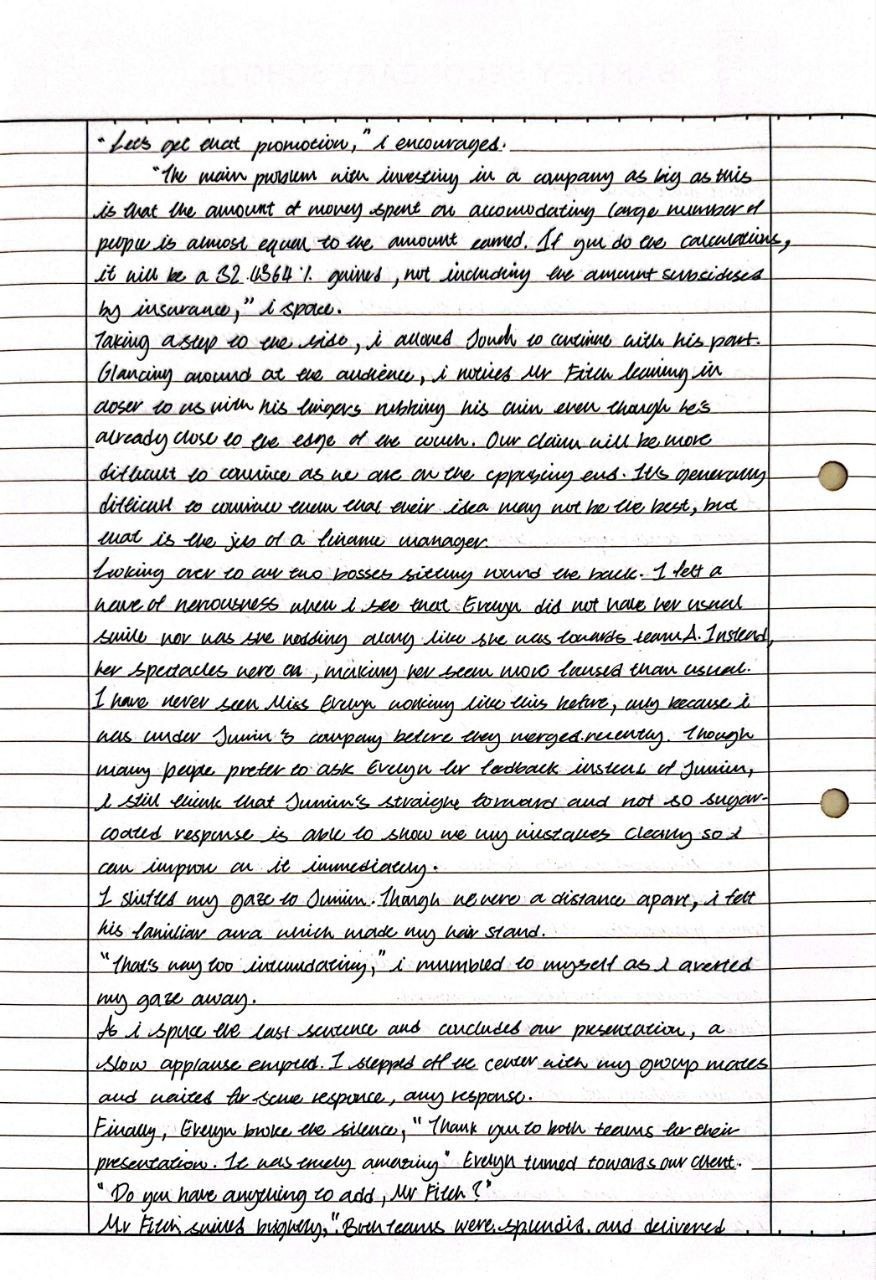 "Let's get that promotion," i encourages.
"The main problem with investing in a company as big as this
is that the amount of money spent on accomodating large number of
people is almost equal to the amount earned. If you do the calculations,
it will be a 32.4364% gained, not including the amount subsidesed
by insurance," i spoke.
Taking a step to the side, i allowed Jonah to continue with his part.
Glancing around at the audience, i noticed Mr Fitch leaning in
closer to us with his fingers rubbing his chin even though he's
already close to the edge of the couch. Our claim will be more
difficult to convince as we are on the opposing end. It's generally
difficult to convince them that their idea may not be the best, but
that is the job of a finance manager.
Looking over to our two bosses sitting round the back. I felt a
wave of nervousness when i see that Evelyn did not have her usual
smile nor was she nodding along like she was towards team A. Instead,
her spectacles were on, making her seem more focused than usual.
I have never seen Miss Evelyn working like this before, only because i
was under Junin's company before they merged recently. Though
many people prefer to ask Evelyn for feedback instead of Junin,
i still think that Junin's straight forward and not so sugar-
coated response is able to show me my mistakes clearly so i
can improve on it immediately.
I shifted my gaze to Junin. Though we were a distance apart, i felt
his familiar aura which made my hair stand.
"That's way too intimidating," i mumbled to myself as i averted
my gaze away.
As i spoke the last sentence and concluded our presentation, a
slow applause erupted. I stepped off the center with my group mates
and waited for some responce, any response.
Finally, Evelyn broke the silence, "Thank you to both teams for their
presentation. It was truely amazing" Evelyn turned towards our client.
"Do you have anything to add, Mr Fitch?"
Mr Fitch smiled brightly, "Both teams were splendid and delivered